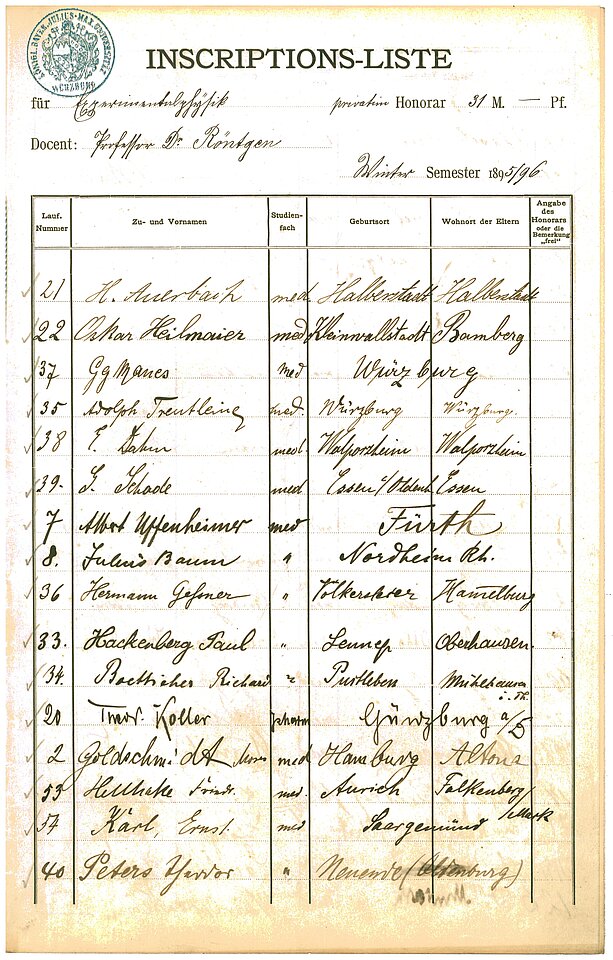 KÖNIGL. BAYER. JULIUS-MAX. UNIVERSITÄT WÜRZBURG
INSCRIPTIONS-LISTE
für Experimentalphysik privatim Honorar 31 M. — Pf.
Docent: Professor Dr Röntgen
Winter Semester 1895/96
Lauf. Nummer Zu- und Vornamen Studien-fach Geburtsort Wohnort der Eltern Angabe des Honorars oder die Bemerkung „frei"
21 H. Auerbach med. Halberstadt Halberstadt
22 Oskar Heilmaier med Kleinwallstadt Bamberg
37 Gg Manes med Würzburg
35 Adolph Treutlein med. Würzburg Würzburg.
38 E. Dahm med. Walporzheim Walporzheim
39. Schade med Essen i/Oldenb Essen
7 Albert Uffenheimer med Fürth
8. Julius Baum " Nordheim Rh.
36 Hermann Geßner " Volkersleier Hammelburg
33. Hackenberg Paul " Lennep Oberhausen.
34. Boetticher Richard " Pustleben Mühlhausen i. Th.
20 Theod. Koller pharm Günzburg a/D
2 Goldschmidt med Hamburg Altona
53 Hellhake Friedr. med. Aurich Falkenberg/Mark
54 Karl, Ernst. med Saargemünd
40 Peters Theodor " Neuende (Oldenburg)